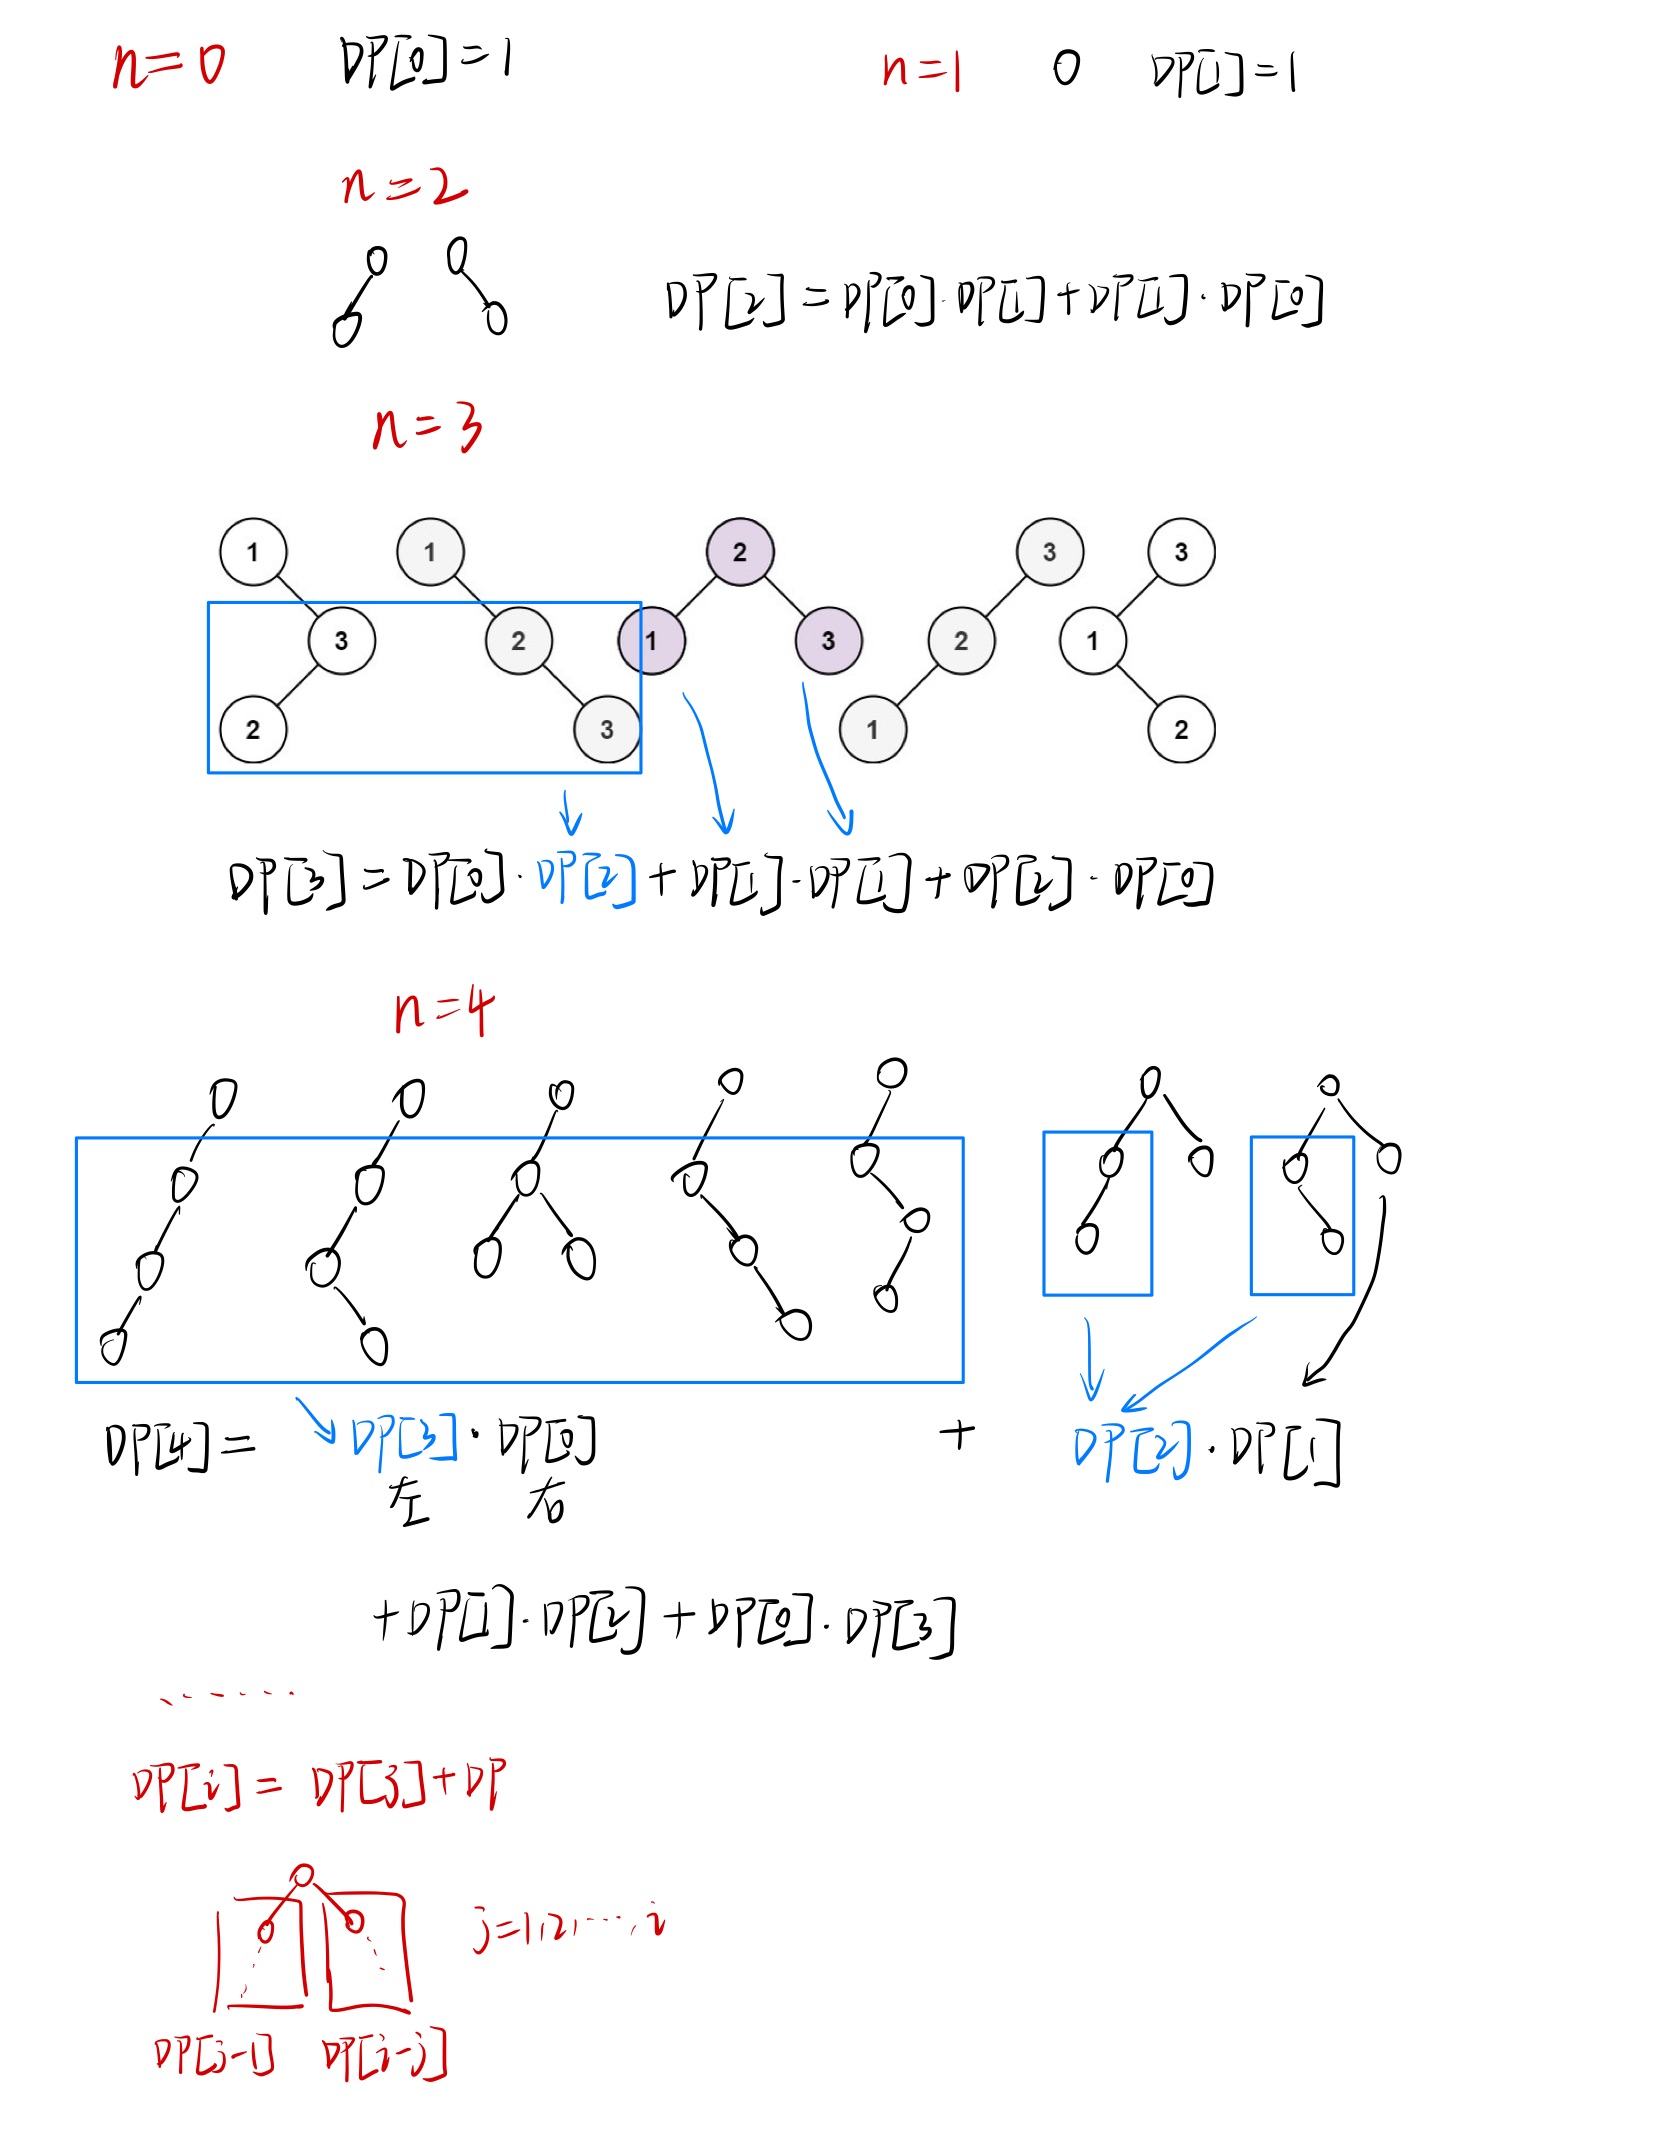 n=0 DP[0]=1 n=1 0 DP[1]=1
n=2
DP[2]=DP[0]·DP[1]+DP[1]·DP[0]
n=3
1 1 2 3 3
3 2 1 3 2 1
2 3 1 2
DP[3]=DP[0]·DP[2]+DP[1]·DP[1]+DP[2]·DP[0]
n=4
DP[4]= DP[3]·DP[0] + DP[2]·DP[1]
左 右
+DP[1]·DP[2]+DP[0]·DP[3]
......
DP[i]= DP[3]+DP
j=1,2,...,i
DP[j-1] DP[i-j]